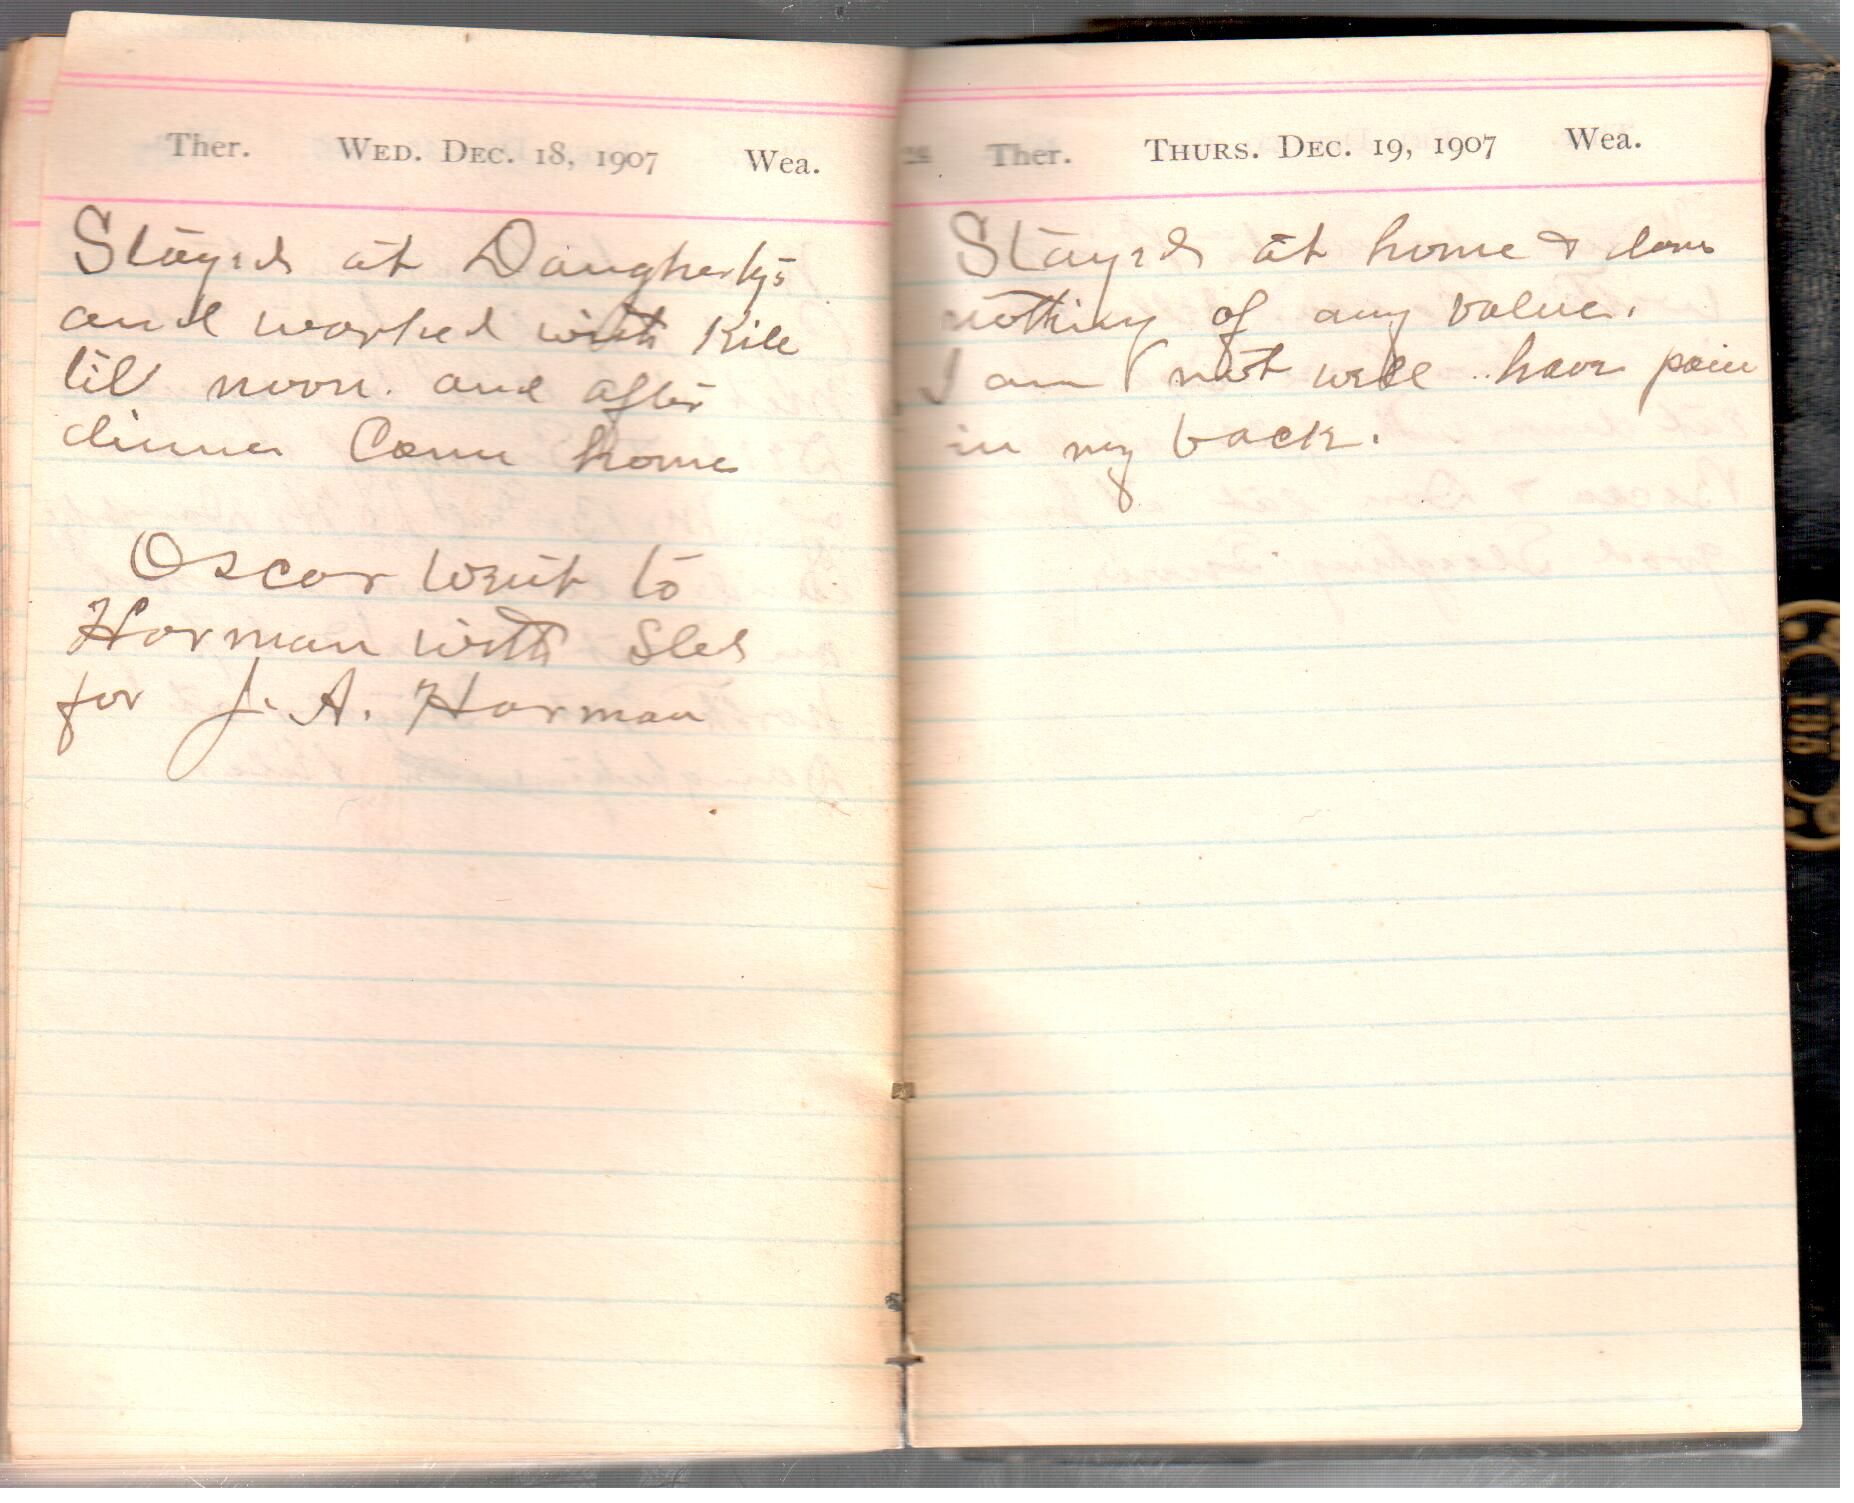 Ther. WED. DEC. 18, 1907 Wea.
Stayed at Daughertys
and worked with Kile
till noon. and after
dinner Come home
Oscar went to
Harman with Sled
for J. A. Harman
Ther. THURS. DEC. 19, 1907 Wea.
Stayed at home & done
nothing of any value.
I am not well. have pain
in my back.